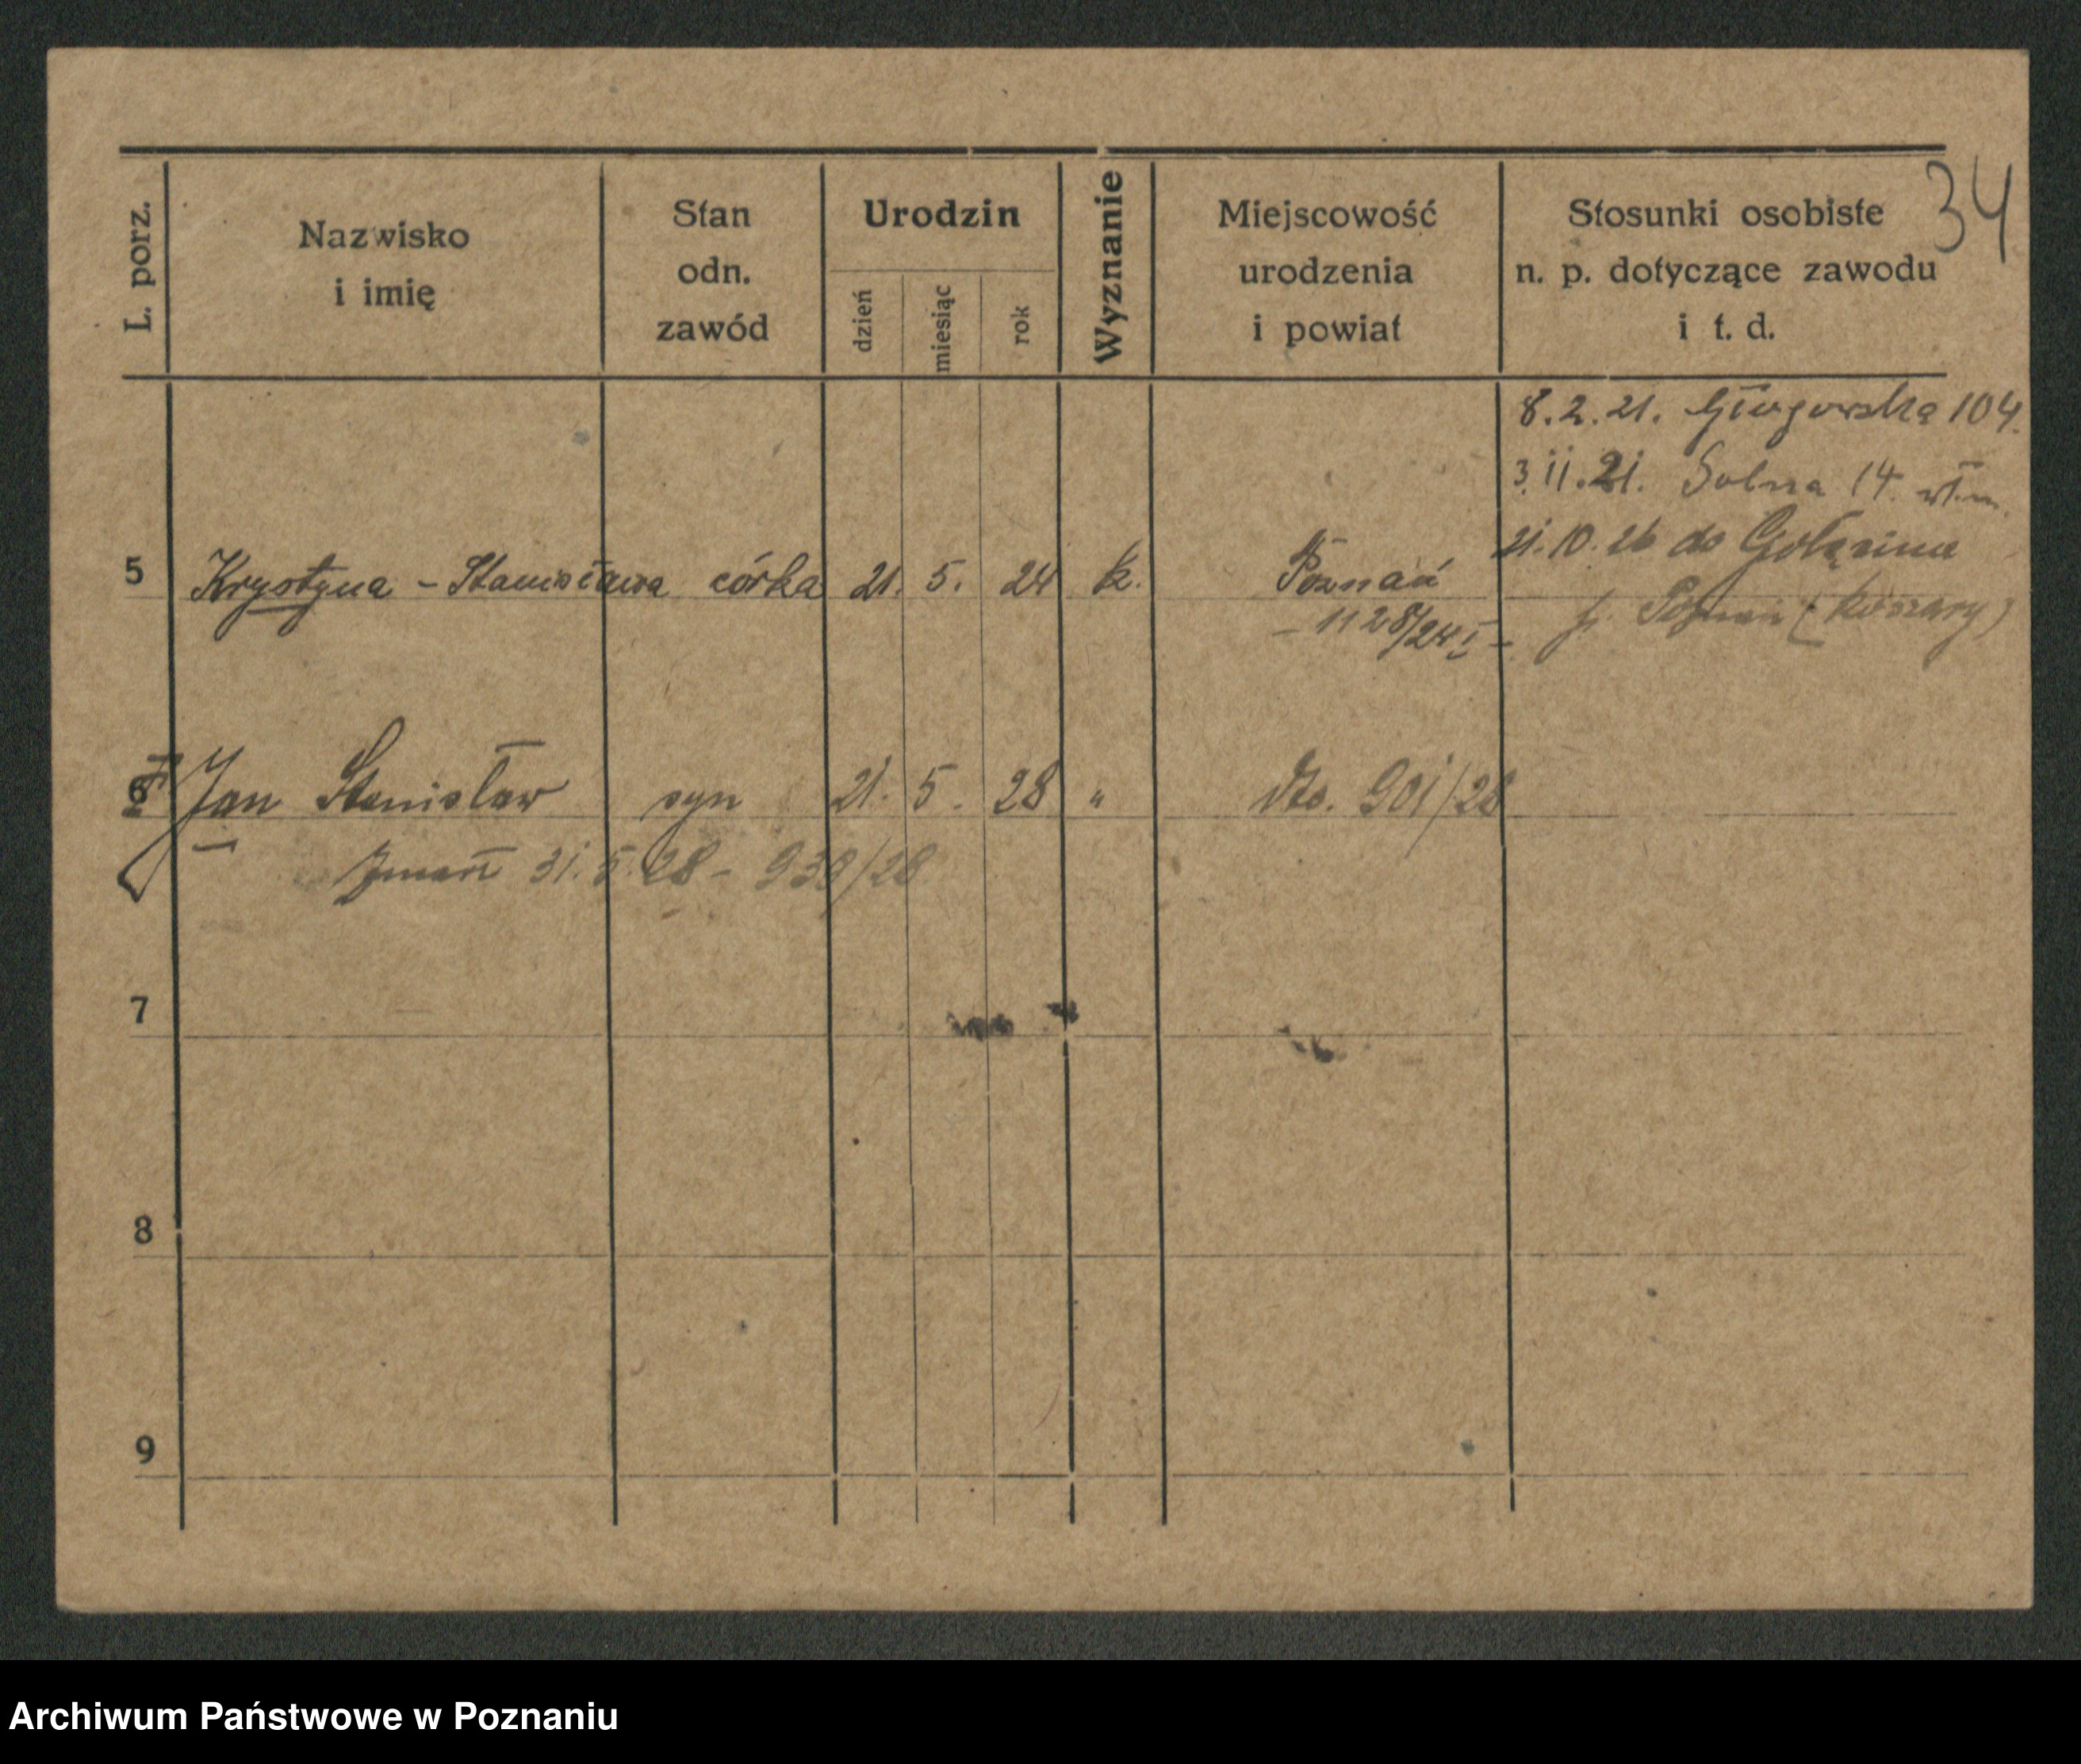 34
L. porz.
Nazwisko
i imię
Stan
odn.
zawód
Urodzin
dzień
miesiąc
rok
Wyznanie
Miejscowość
urodzenia
i powiat
Stosunki osobiste
n. p. dotyczące zawodu
i t. d.
8.2.21. Głogowska 104.
3.11.21. Solna 14.
21.10.26 do Golęcina
p. Poznań (Koszary)
5 Krystyna - Stanisława córka 21. 5. 24 k. Poznań
- 1128/24 I -
6 Jan Stanisław syn 21. 5. 28 " dto. 901/28
Zmarł 31.5.28 - 939/28
7
8
9
Archiwum Państwowe w Poznaniu